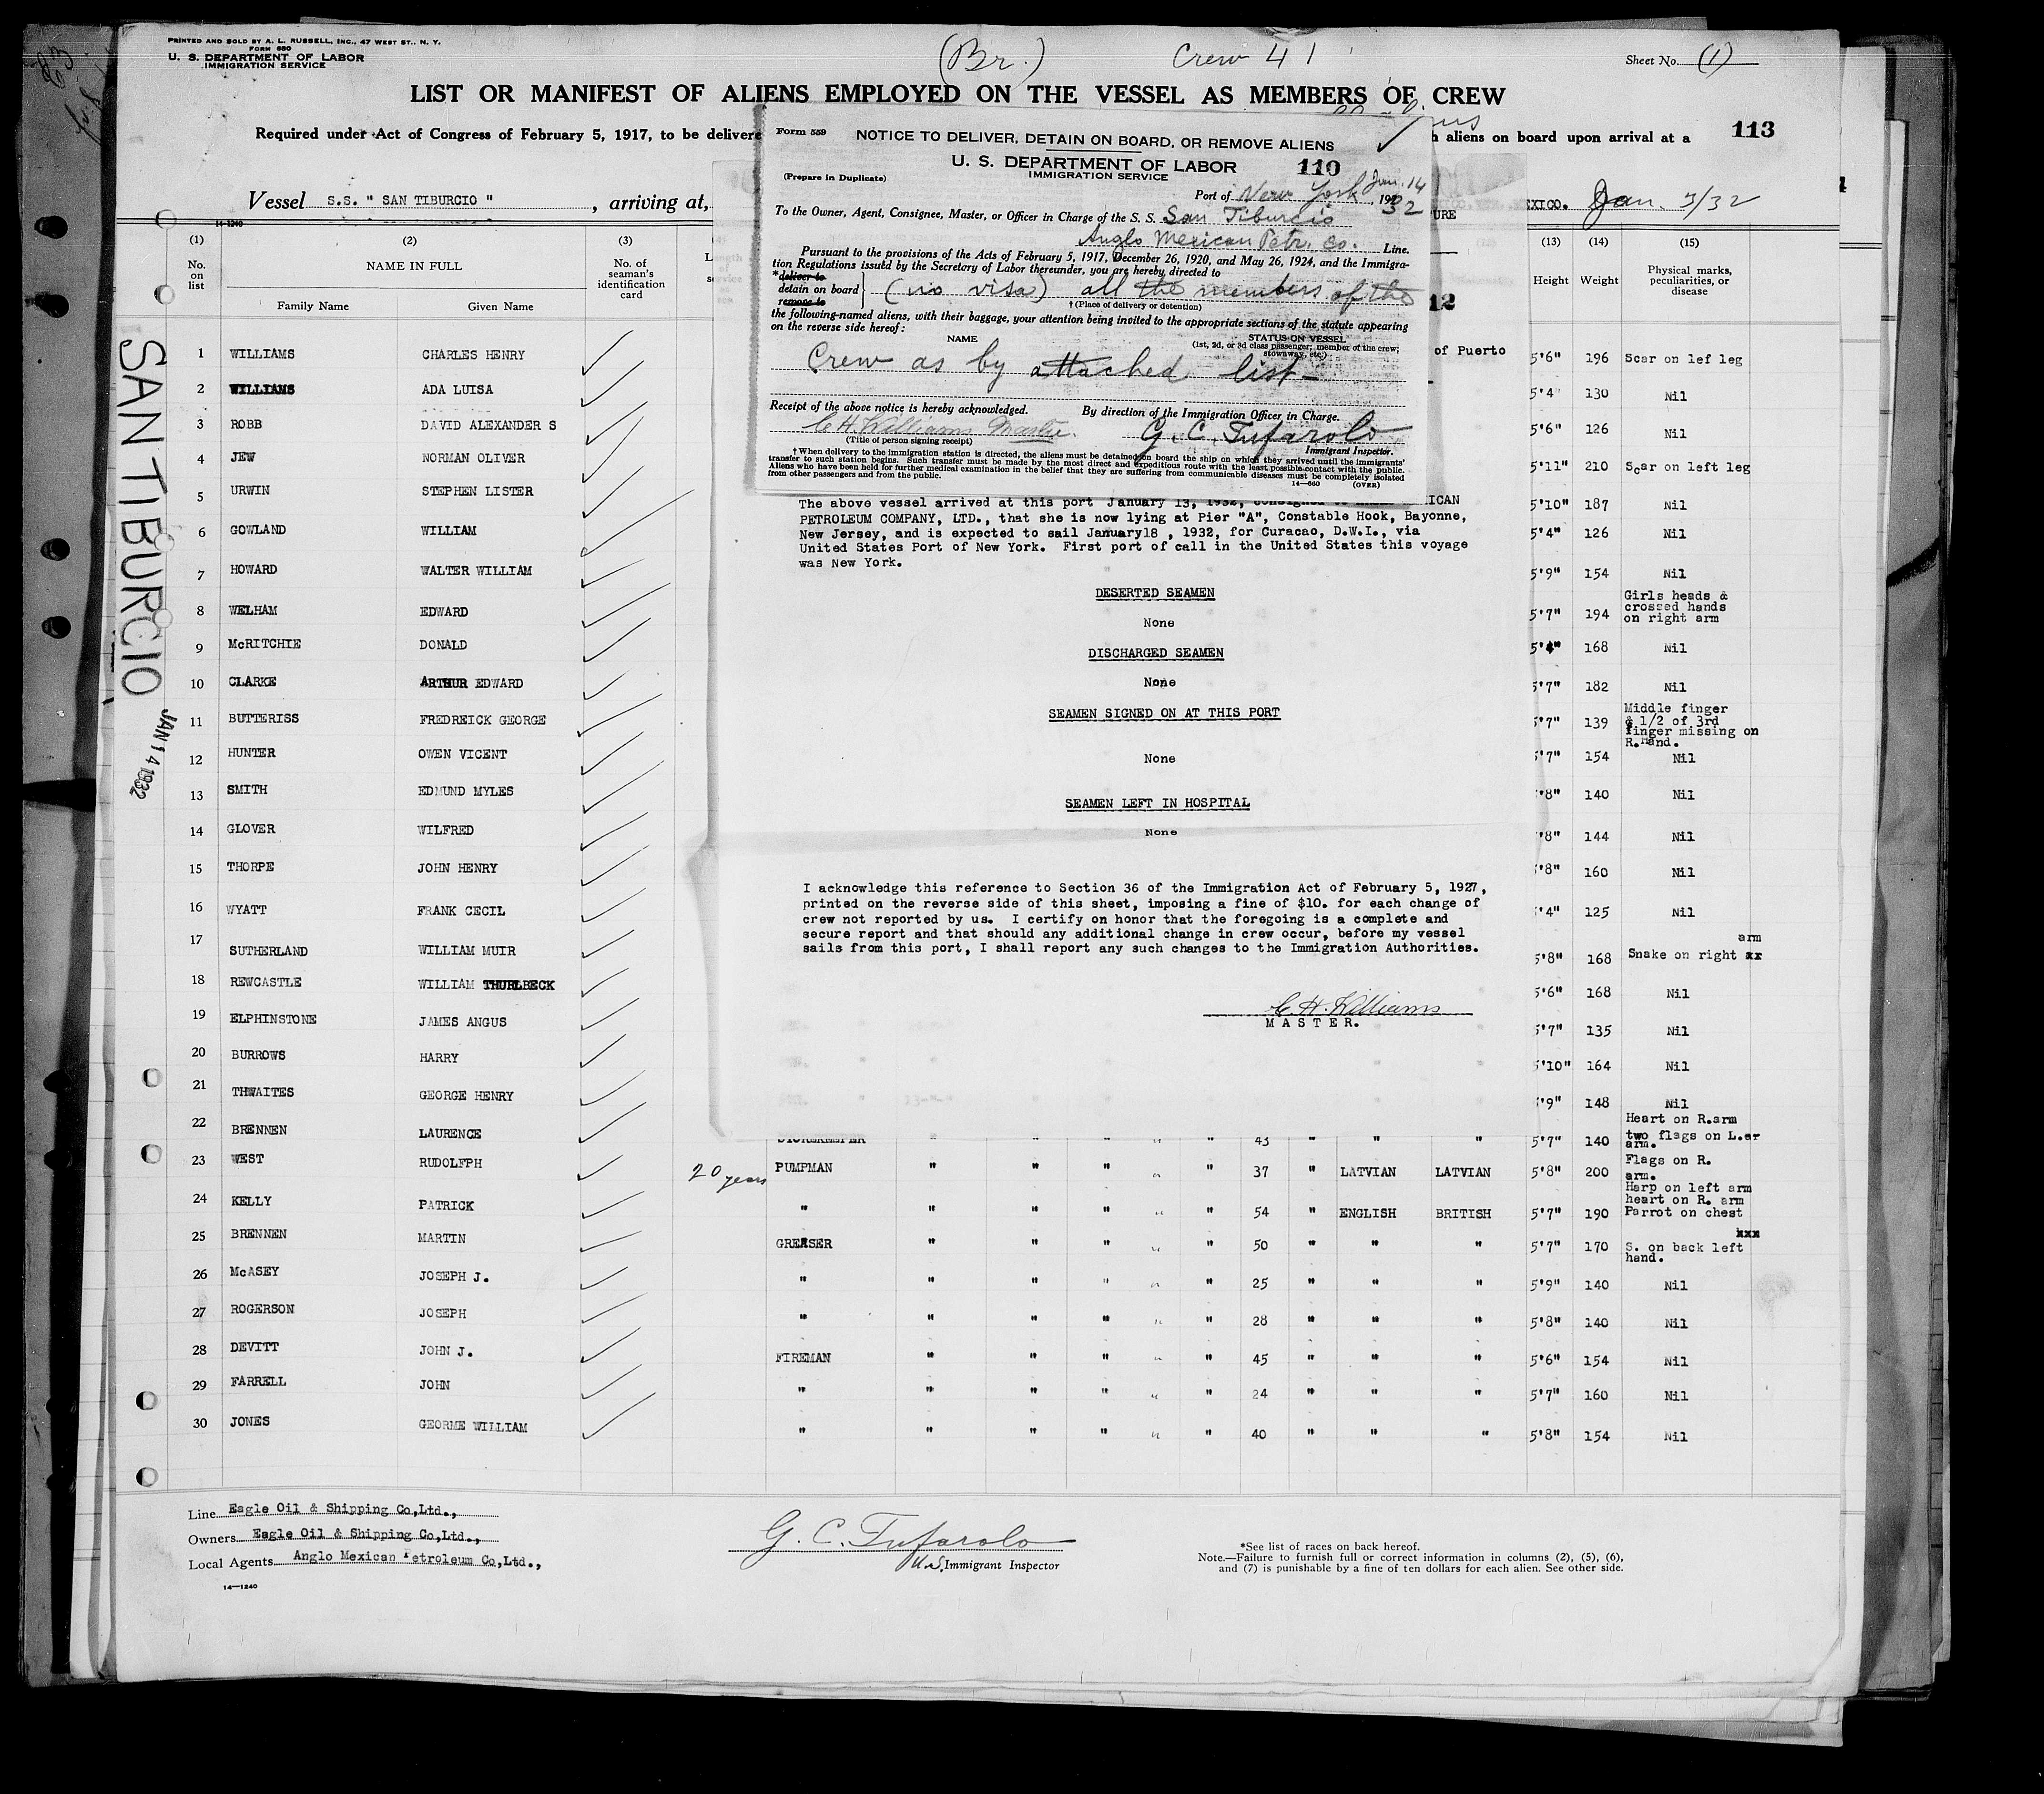 PRINTED AND SOLD BY A. L. RUSSELL, INC., 47 WEST ST., N. Y.
FORM 680
U. S. DEPARTMENT OF LABOR
IMMIGRATION SERVICE
(Br.)
Crew 41
Sheet No. (1)
LIST OR MANIFEST OF ALIENS EMPLOYED ON THE VESSEL AS MEMBERS OF CREW
Required under Act of Congress of February 5, 1917, to be delivere
h aliens on board upon arrival at a
113
Vessel S.S. " SAN TIBURCIO " , arriving at,
EXICO. Jan. 3/32
14-1240
Form 559
NOTICE TO DELIVER, DETAIN ON BOARD, OR REMOVE ALIENS
U. S. DEPARTMENT OF LABOR
110
IMMIGRATION SERVICE
(Prepare in Duplicate)
Port of New York Jan. 14, 1932
To the Owner, Agent, Consignee, Master, or Officer in Charge of the S. S. San Tiburcio
Anglo Mexican Petr. Co. Line.
Pursuant to the provisions of the Acts of February 5, 1917, December 26, 1920, and May 26, 1924, and the Immigra-
tion Regulations issued by the Secretary of Labor thereunder, you are hereby directed to
*deliver to
detain on board
remove to
(no visa) all the members of the
†(Place of delivery or detention)
the following-named aliens, with their baggage, your attention being invited to the appropriate sections of the statute appearing
on the reverse side hereof:
NAME
STATUS ON VESSEL
(1st, 2d, or 3d class passenger; member of the crew;
stowaway, etc.)
Crew as by attached list —
Receipt of the above notice is hereby acknowledged.
By direction of the Immigration Officer in Charge.
C H Williams Master.
G. C. Tufarolo
(Title of person signing receipt)
Immigrant Inspector.
†When delivery to the immigration station is directed, the aliens must be detained on board the ship on which they arrived until the immigrants'
transfer to such station begins. Such transfer must be made by the most direct and expeditious route with the least possible contact with the public.
Aliens who have been held for further medical examination in the belief that they are suffering from communicable diseases must be completely isolated
from other passengers and from the public.
14—660 (OVER)
URE
12
of Puerto
The above vessel arrived at this port January 13, 1932, ICAN
PETROLEUM COMPANY, LTD., that she is now lying at Pier "A", Constable Hook, Bayonne,
New Jersey, and is expected to sail January18 , 1932, for Curacao, D.W.I., via
United States Port of New York. First port of call in the United States this voyage
was New York.
DESERTED SEAMEN
None
DISCHARGED SEAMEN
None
SEAMEN SIGNED ON AT THIS PORT
None
SEAMEN LEFT IN HOSPITAL
None
I acknowledge this reference to Section 36 of the Immigration Act of February 5, 1927,
printed on the reverse side of this sheet, imposing a fine of $10. for each change of
crew not reported by us. I certify on honor that the foregoing is a complete and
secure report and that should any additional change in crew occur, before my vessel
sails from this port, I shall report any such changes to the Immigration Authorities.
C. H. Williams
MASTER.
SAN TIBURCIO
JAN 14 1932
(1) (2) (3) (13) (14) (15)
No. on list
NAME IN FULL
Family Name Given Name
No. of seaman's identification card
Height Weight Physical marks, peculiarities, or disease
1 WILLIAMS CHARLES HENRY 5'6" 196 Scar on lef leg
2 WILLIAMS ADA LUISA 5'4" 130 Nil
3 ROBB DAVID ALEXANDER S 5'6" 126 Nil
4 JEW NORMAN OLIVER 5'11" 210 Scar on left leg
5 URWIN STEPHEN LISTER 5'10" 187 Nil
6 GOWLAND WILLIAM 5'4" 126 Nil
7 HOWARD WALTER WILLIAM 5'9" 154 Nil
8 WELHAM EDWARD 5'7" 194 Girls heads & crossed hands on right arm
9 McRITCHIE DONALD 5'4" 168 Nil
10 CLARKE ARTHUR EDWARD 5'7" 182 Nil
11 BUTTERISS FREDREICK GEORGE '7" 139 Middle finger & 1/2 of 3rd finger missing on R.Hand.
12 HUNTER OWEN VICENT '7" 154 Nil
13 SMITH EDMUND MYLES '8" 140 Nil
14 GLOVER WILFRED '8" 144 Nil
15 THORPE JOHN HENRY '8" 160 Nil
16 WYATT FRANK CECIL '4" 125 Nil
17 SUTHERLAND WILLIAM MUIR 5'8" 168 Snake on right xx arm
18 REWCASTLE WILLIAM THURLBECK 5'6" 168 Nil
19 ELPHINSTONE JAMES ANGUS 5'7" 135 Nil
20 BURROWS HARRY 5'10" 164 Nil
21 THWAITES GEORGE HENRY '9" 148 Nil
22 BRENNEN LAURENCE STOREKEEPER " " " " " 43 " " " 5'7" 140 Heart on R.arm two flags on L.er arm.
23 WEST RUDOLFPH 20 years PUMPMAN " " " " " 37 " LATVIAN LATVIAN 5'8" 200 Flags on R. arm.
24 KELLY PATRICK " " " " " " 54 " ENGLISH BRITISH 5'7" 190 Harp on left arm heart on R. arm Parrot on chest
25 BRENNEN MARTIN GREASER " " " " " 50 " " " 5'7" 170 xxx S. on back left hand.
26 McASEY JOSEPH J. " " " " " " 25 " " " 5'9" 140 Nil
27 ROGERSON JOSEPH " " " " " " 28 " " " 5'8" 140 Nil
28 DEVITT JOHN J. FIREMAN " " " " " 45 " " " 5'6" 154 Nil
29 FARRELL JOHN " " " " " " 24 " " " 5'7" 160 Nil
30 JONES GEORME WILLIAM " " " " " " 40 " " " 5'8" 154 Nil
Line Eagle Oil & Shipping Co,Ltd.,
Owners Eagle Oil & Shipping Co,Ltd.,
Local Agents Anglo Mexican Petroleum Co,Ltd.,
14—1240
G. C. Tufarolo
U.S. Immigrant Inspector
*See list of races on back hereof.
Note.—Failure to furnish full or correct information in columns (2), (5), (6),
and (7) is punishable by a fine of ten dollars for each alien. See other side.